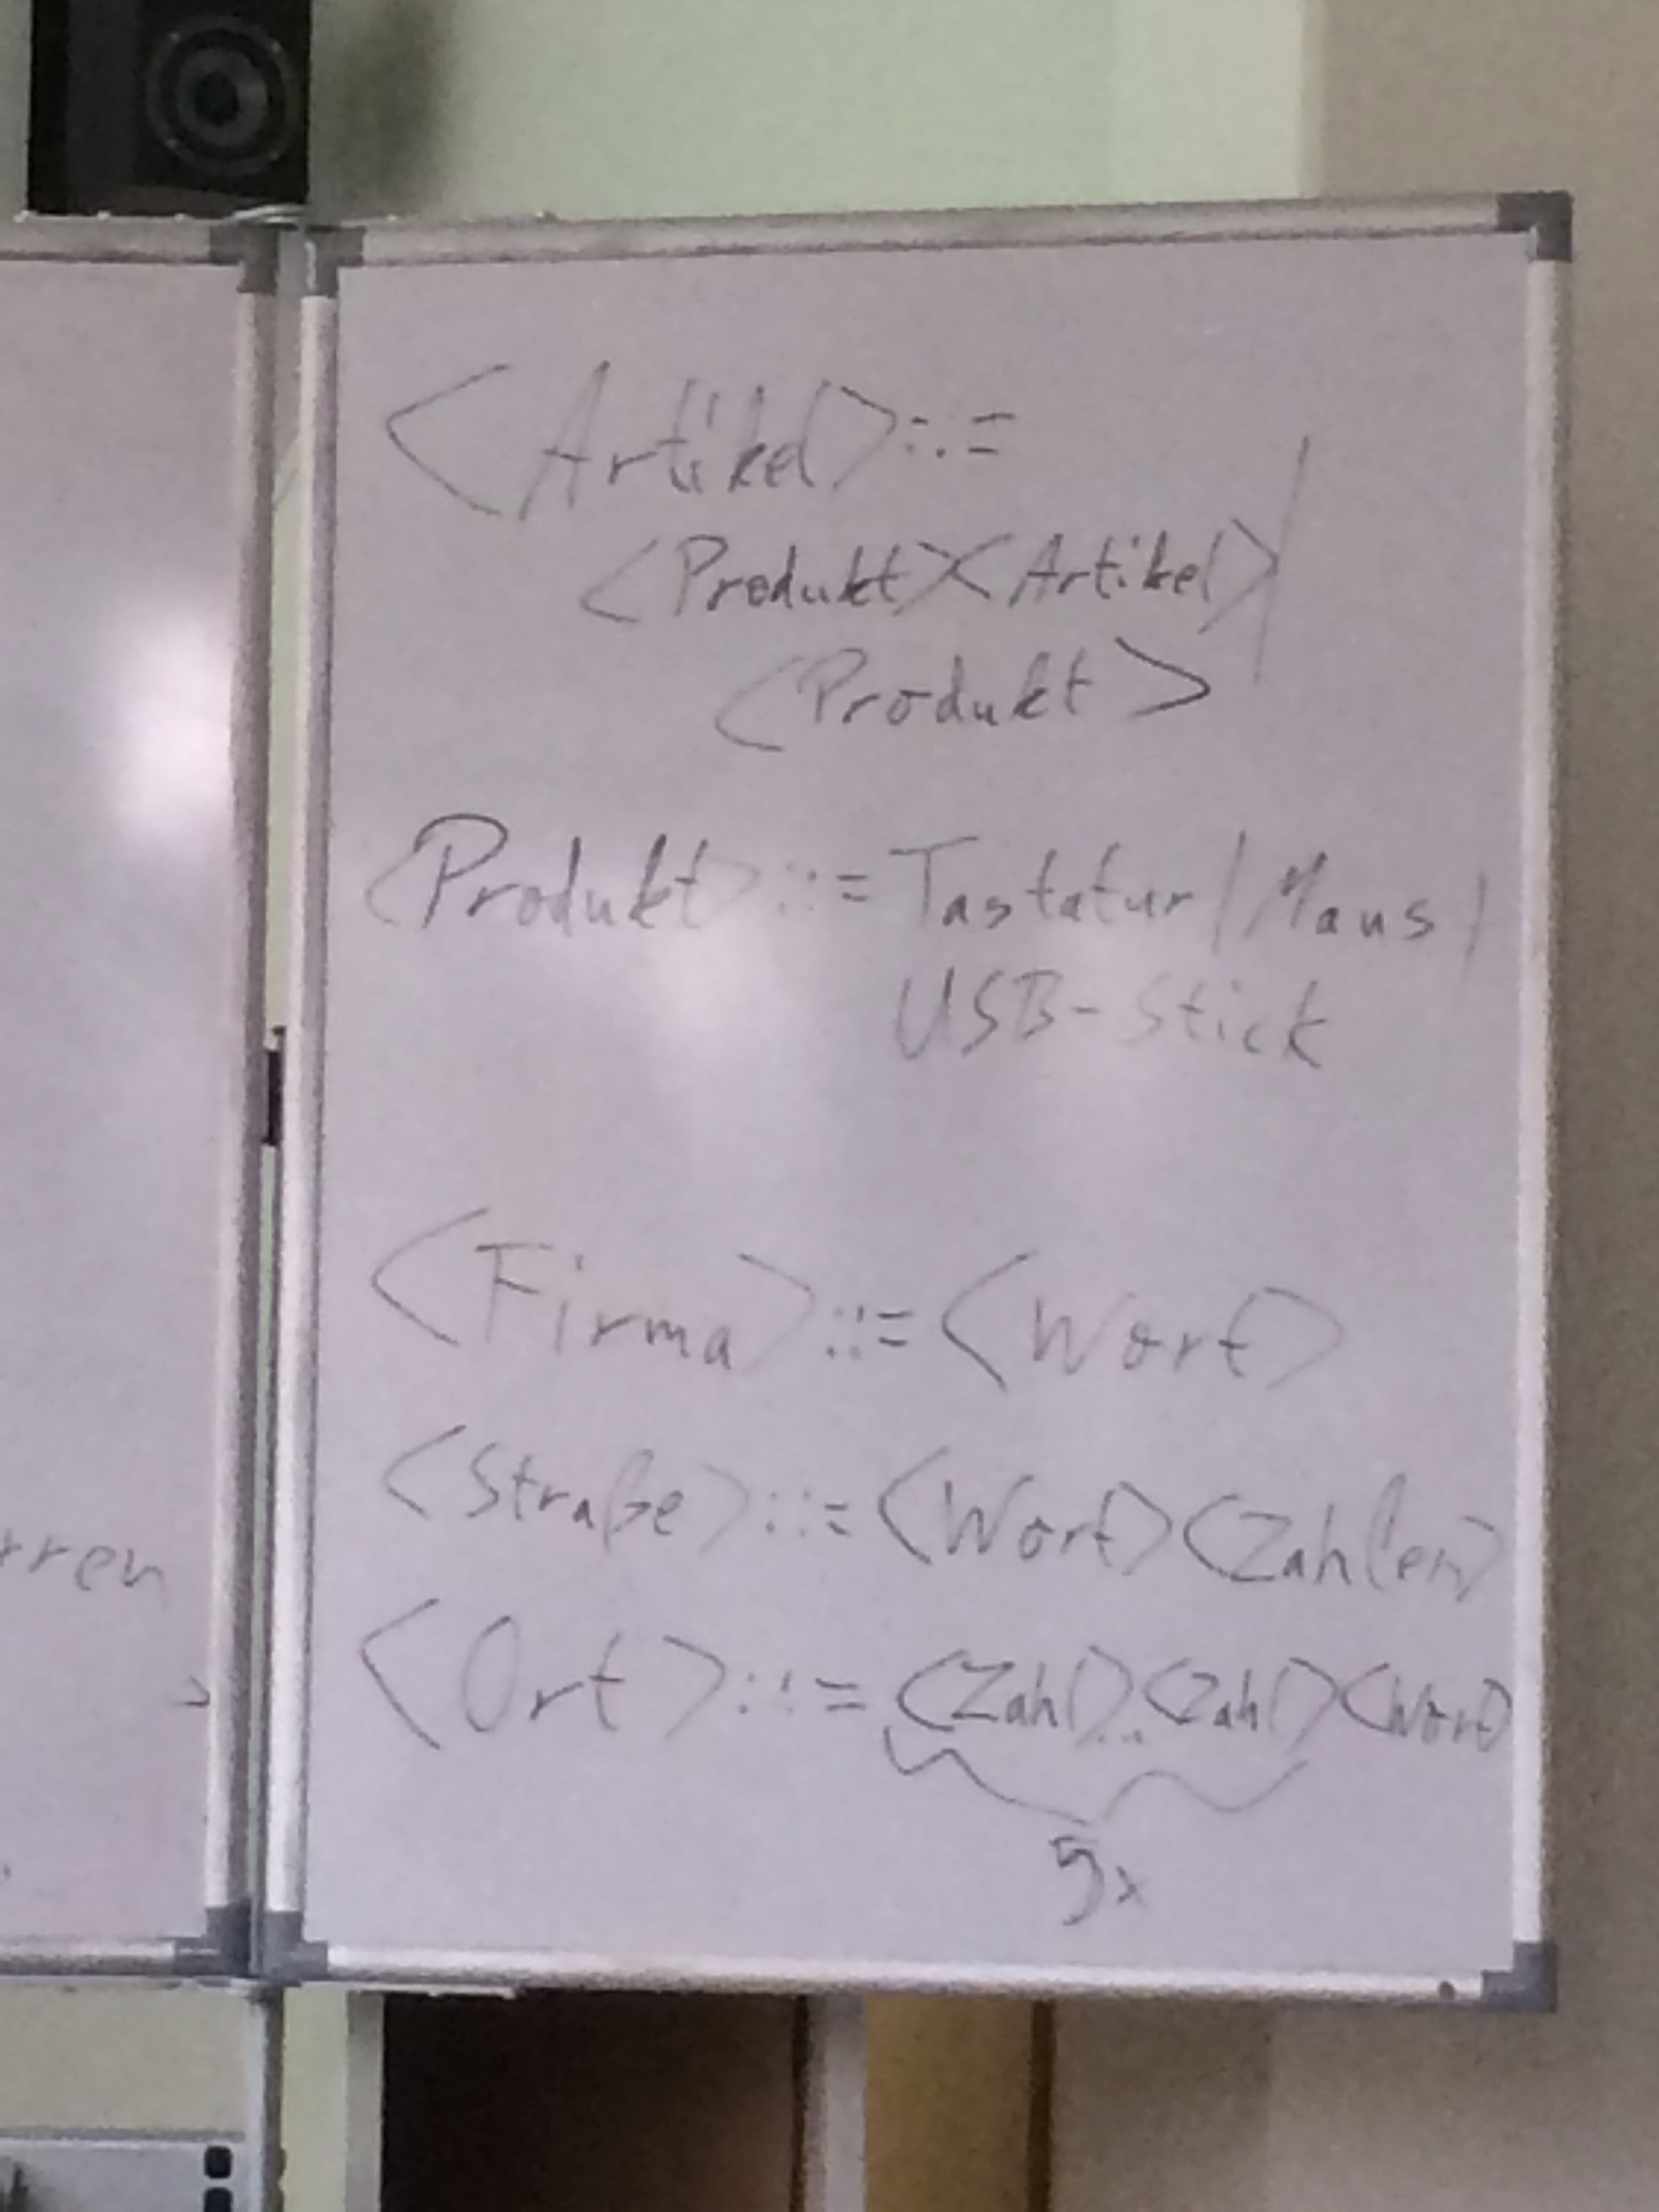 <Artikel>::=
<Produkt><Artikel>|
<Produkt>
<Produkt>::= Tastatur | Maus |
USB-Stick
<Firma>::= <Wort>
<Straße>::= <Wort><Zahlen>
<Ort>::= <Zahl>..<Zahl><Wort>
5x